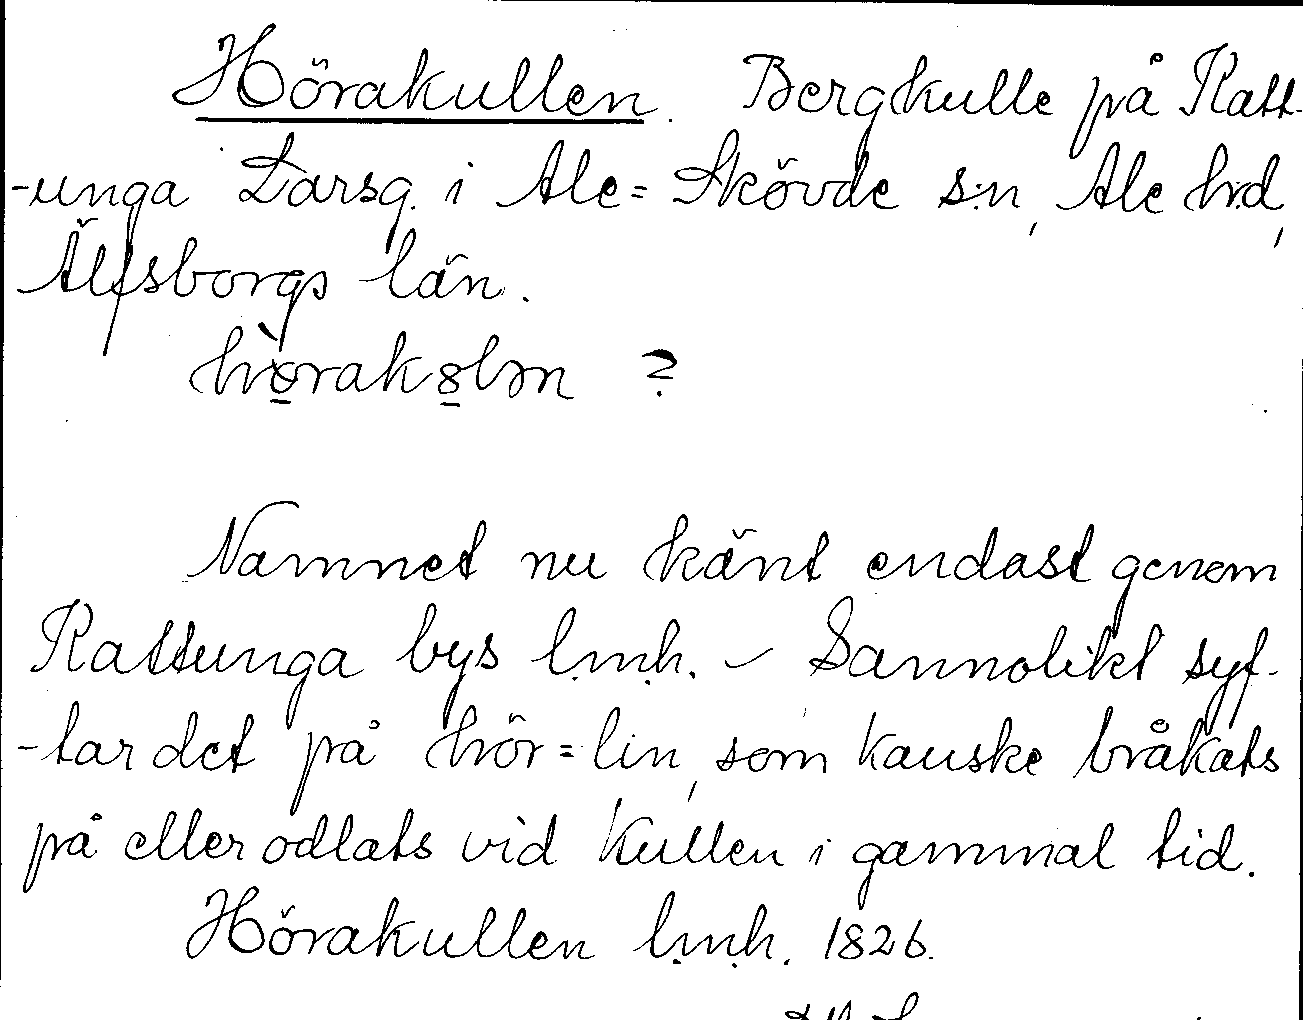 Hörakullen. Bergkulle på Ratt-
-unga Larsg. i Ale=Skövde s:n, Ale hrd,
Älfsborgs län.
?
Namnet nu känt endast genom
Rattunga bys l.m.h. – Sannolikt syf-
-tar det på hör=lin, som kanske bråkats
på eller odlats vid kullen i gammal tid.
Hörakullen l.m.h. 1826.